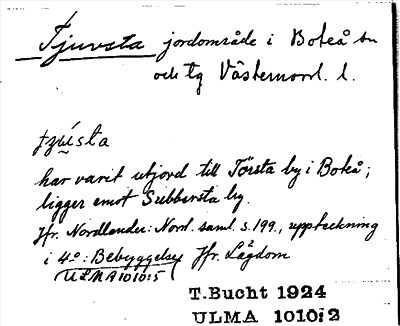 Tjuvsta jordområde i Boteå sn
och tg Västernorrl. l.
har varit utjord till Törsta by i Boteå;
ligger emot Subbersta by.
Jfr. Nordlander: Norrl. saml. s. 199., uppteckning
i 4º: Bebyggelse Jfr. Lågdom
ULMA 1010:5
T.Bucht 1924
ULMA 1010:2